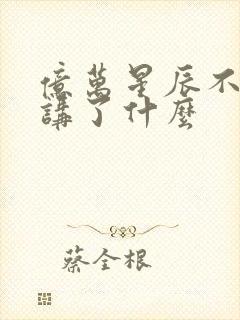 億萬星辰不
講了什麼
蔡全根